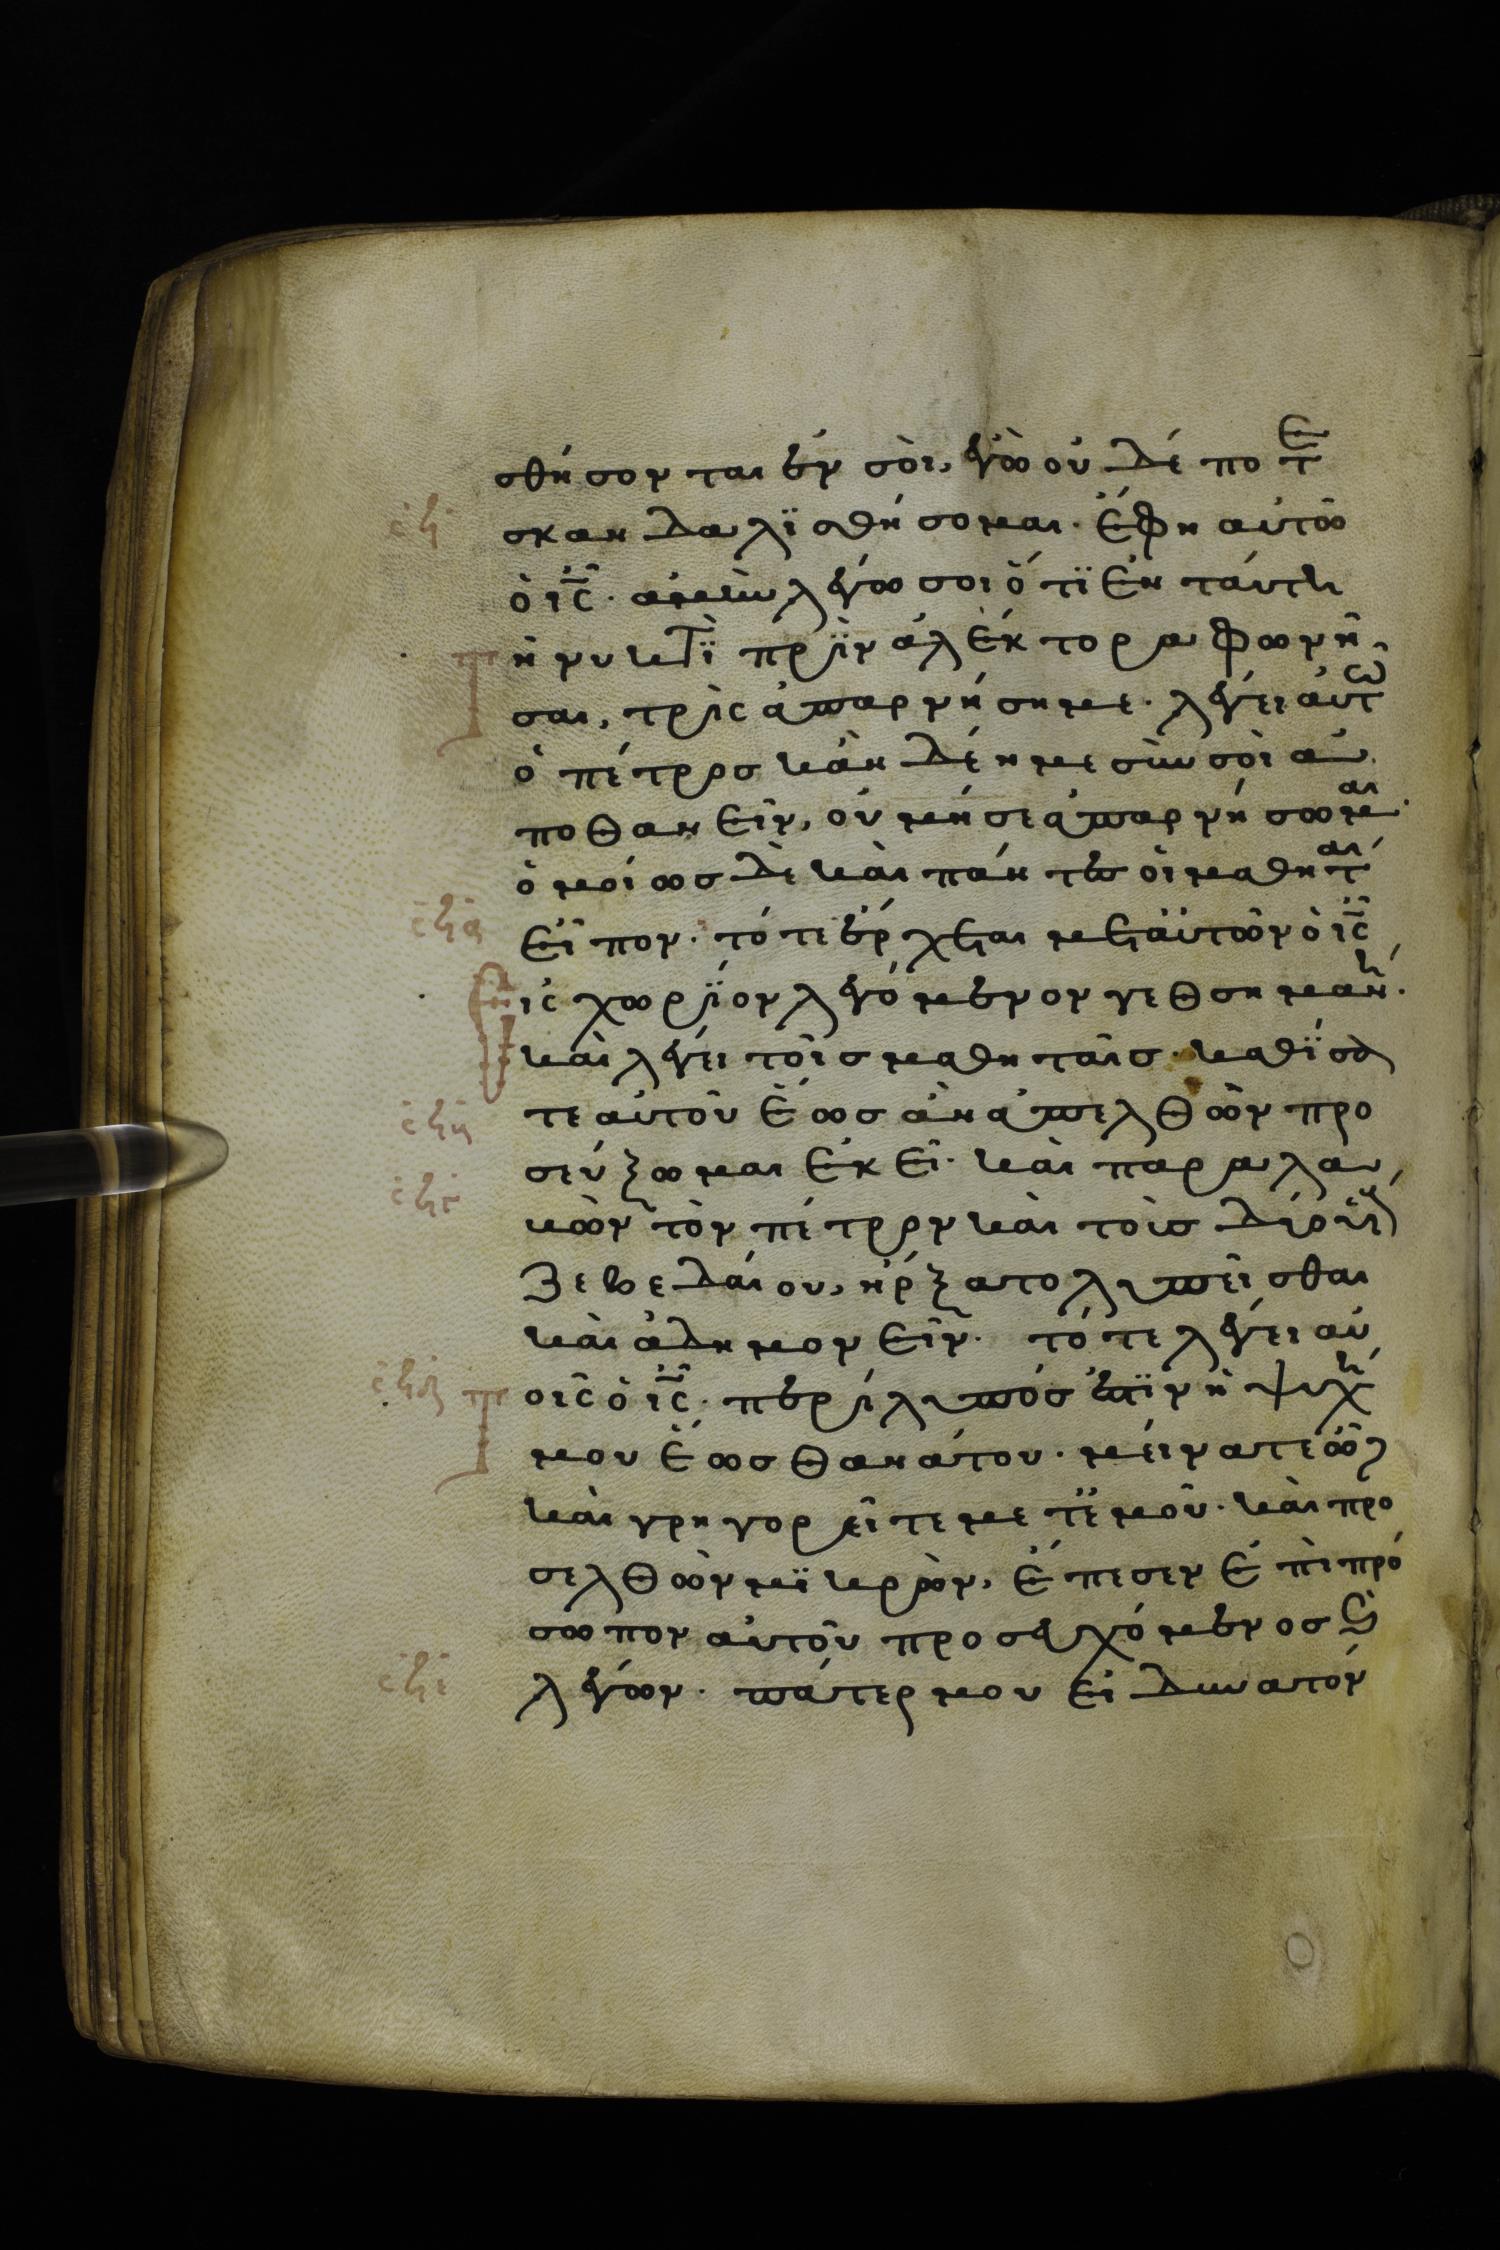 σθήσονται ἐν σοὶ, ἐγὼ οὐδέποτε
σκανδαλϊσθήσομαι· ἔφη αὐτῶ
ὁ ις· ἀμὴν λέγω σοι ὅτϊ ἐν ταύτη
τῆ νυκτὶ πρὶν ἀλέκτορα φωνῆ
σαι, τρὶς ἀπαρνήση με· λέγει αὐτῶ
ὁ πέτρος κἂν δέη με σὺν σοὶ ἀ
ποθανεῖν, οὐ μή σε ἀπαρνήσωμαι·
ὁμοίως δὲ καὶ πάντες οἱ μαθηταὶ
εἶπον· τότε ἔρχεται μετ αὐτῶν ὁ ις
εἰς χωρίον λεγόμενον γεθσημανῆ·
καὶ λέγει τοῖς μαθηταῖς· καθϊσα
τε αὐτοῦ ἕως ἂν ἀπελθὼν προ
σεύξωμαι ἐκεῖ· καὶ παραλα
βὼν τὸν πέτρον καὶ τοὺς δύο υἱοὺς
ζεβεδαίου, ἤρξατο λυπεῖσθαι
καὶ ἀδημονεῖν· τότε λέγει αὐ
τοῖς ὁ ις· περίλυπός ἐστϊν ἡ ψυχή
μου ἕως θανάτου· μείνατε ὧδε
καὶ γρηγορεῖτε μετ ἐμοῦ· καὶ προ
σελθὼν μϊκρὸν, ἔπεσεν ἐπὶ πρό
σωπον αὐτοῦ προσευχόμενος καὶ
λέγων· πάτερ μου εἰ δυνατόν